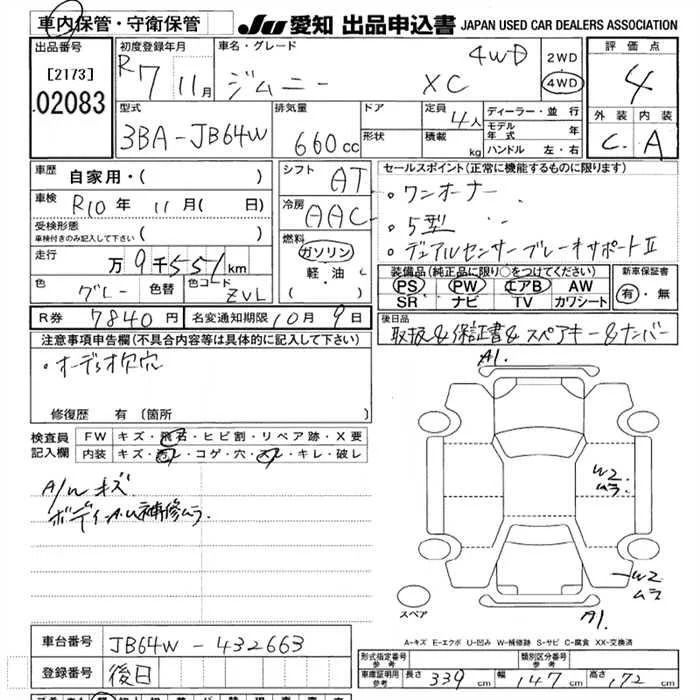 車内保管・守衛保管
JU 愛知 出品申込書 JAPAN USED CAR DEALERS ASSOCIATION
出品番号 [2173] 02083
初度登録年月 R7 11月
車名・グレード ジムニー XC 4WD
2WD 4WD
評価点 4
外装 内装
C A
型式 3BA-JB64W
排気量 660cc
ドア 形状
定員 4人
積載 kg
ディーラー・並行
モデル年式 年
ハンドル 左・右
車歴 自家用・( )
車検 R10年 11月( 日)
受検形態 車検付きのみ記入して下さい ( )
走行 万9千551km
色 グレー 色替 色コード ZVL
シフト AT
冷房 AAC
燃料 ガソリン 軽油 ・( )
セールスポイント(正常に機能するものに限ります)
・ワンオーナー
・5型
・デュアルセンサーブレーキサポートⅡ
装備品(純正品に限り○をつけてください)
PS PW エアB AW
SR ナビ TV カワシート
新車保証書 有・無
R券 7840円 名変通知期限 10月9日
後日品
取扱&保証書&スペアキー&ナンバー
注意事項申告欄(不具合内容等は具体的に記入して下さい)
・オーディオ欠穴
修復歴 有(箇所
検査員記入欄
FW キズ・飛石・ヒビ割・リペア跡・X要
内装 キズ・汚レ・コゲ・穴・スレ・キレ・破レ
A/Wキズ
ボディA.U補修ムラ.
A1.
W2
ムラ
W2
ムラ
A1.
スペア
A-キズ E-エクボ U-凹み W-補修跡 S-サビ C-腐食 XX-交換済
車台番号 JB64W-432663
登録番号 後日
形式指定番号 参考
類別区分番号 参考
車庫証明用 参考 長さ 339cm 幅 147cm 高さ 172cm